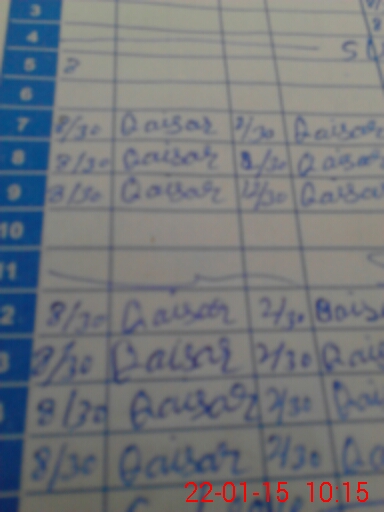 3
4
5
6
7 8/30 Qaisar 2/30 Qaisar
8 8/30 Qaisar 8/30 Qaisa
9 8/30 Qaisar 12/30 Qaisa
10
11
2 8/30 Qaisar 2/30 Qais
3 8/30 Qaisar 2/30 Qai
8/30 Qaisar 2/30 Qai
8/30 Qaisar 2/30 Qa
22-01-15 10:15